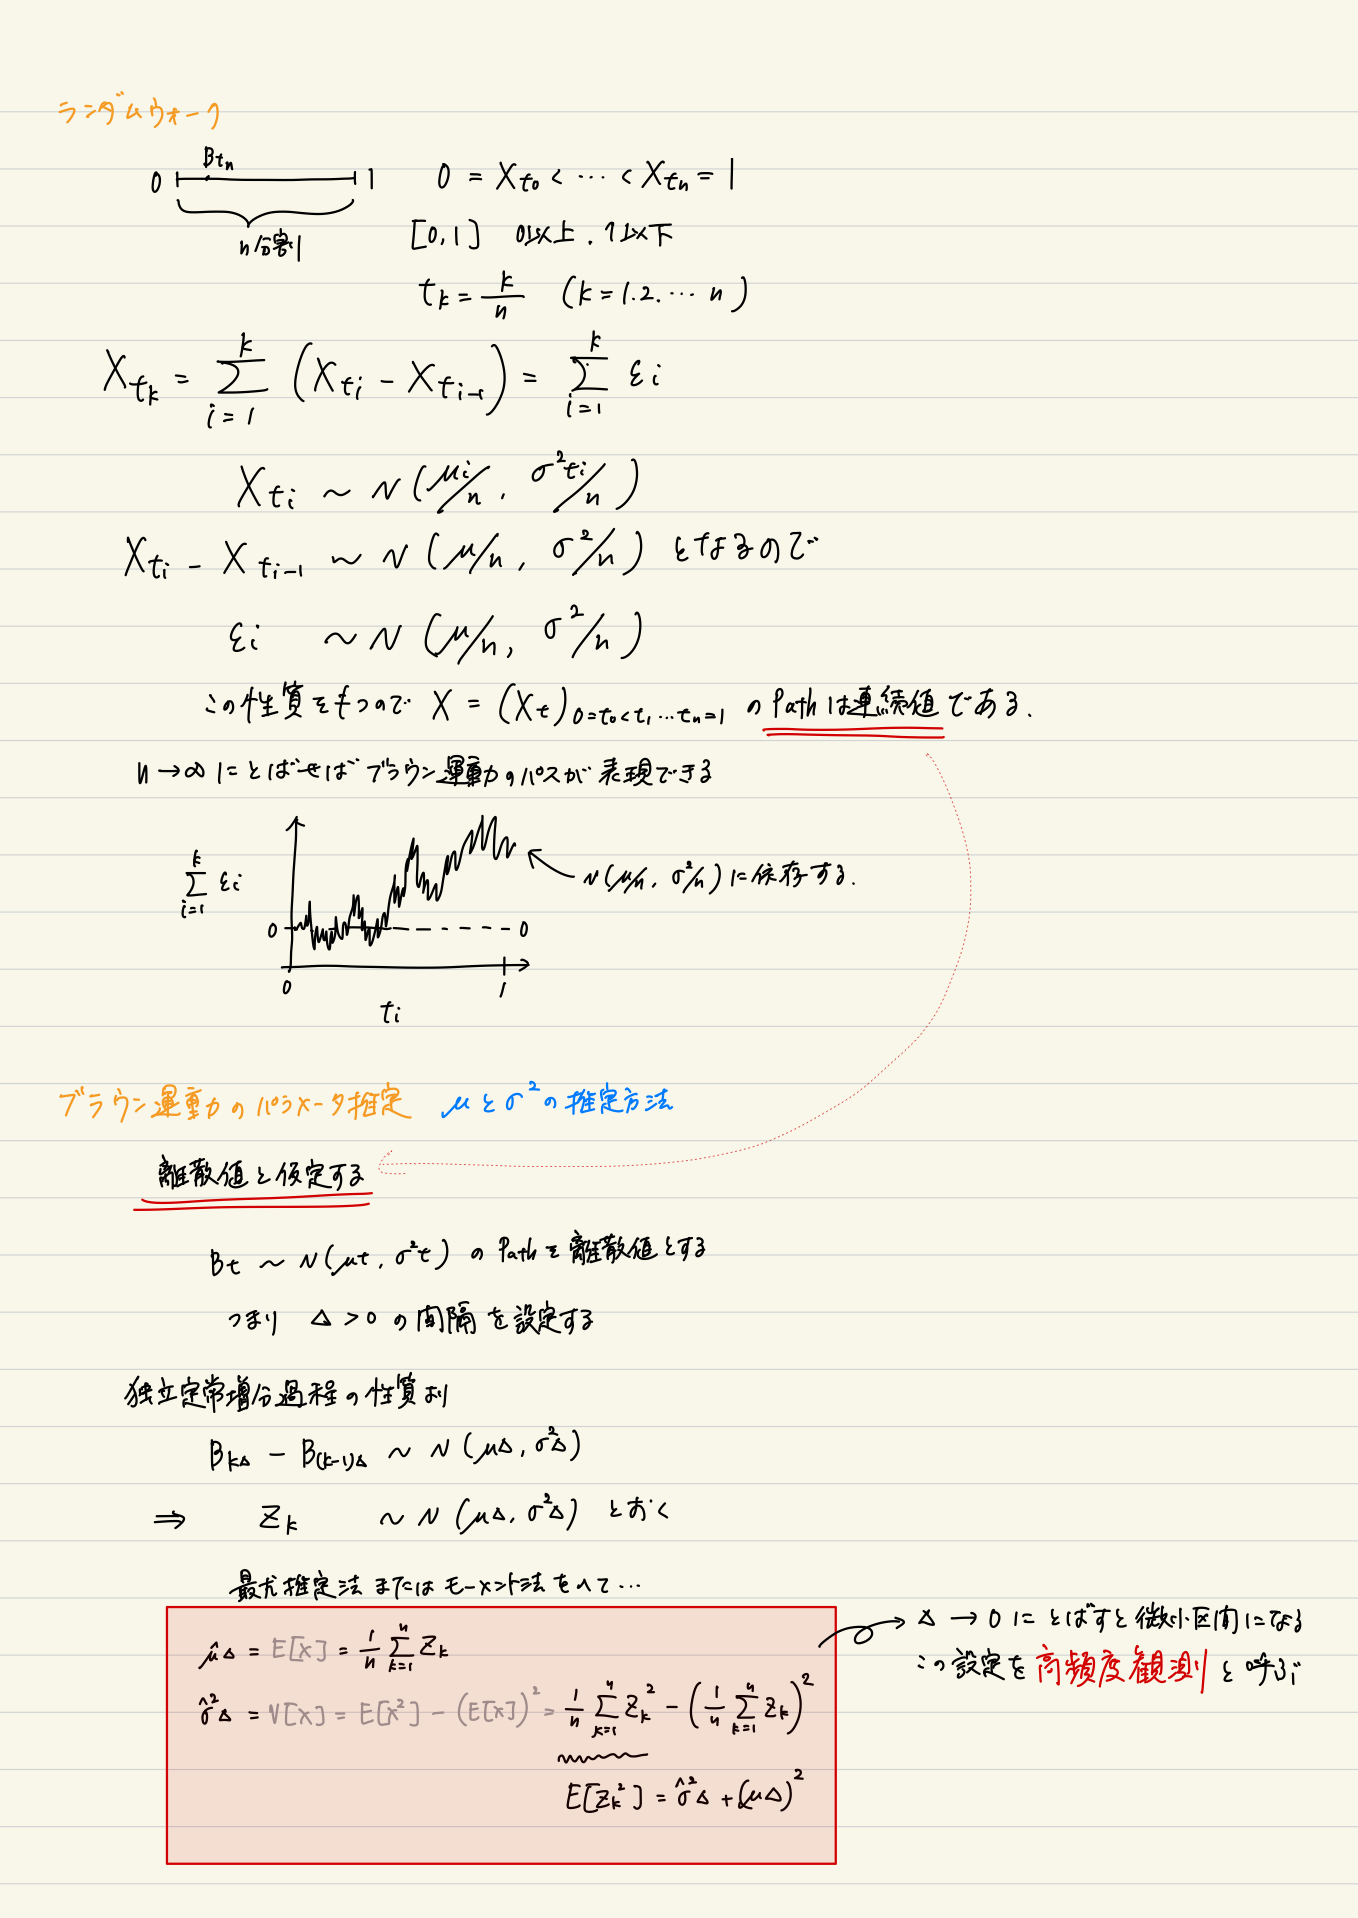 ランダムウォーク
0 Btn 1 0 = Xt₀ < ⋯ < Xtn = 1
n分割 [0,1] 0以上.1以下
tk = k/n (k=1.2.⋯ n)
Xtk = Σ_{i=1}^{k} (Xti − Xti-1) = Σ_{i=1}^{k} εi
Xti ~ N(μi/n, σ²ti/n)
Xti − Xti-1 ~ N(μ/n, σ²/n) となるので
εi ~ N(μ/n, σ²/n)
この性質をもつので X = (Xt)0=t₀<t₁…tn=1 の Pathは連続値である.
n→∞にとばせばブラウン運動のパスが表現できる
Σ_{i=1}^{k} εi
N(μ/n, σ²/n)に依存する.
0 0
0 1
ti
ブラウン運動のパラメータ推定 μとσ²の推定方法
離散値と仮定する
Bt ~ N(μt, σ²t) の Pathを離散値とする
つまり Δ>0 の間隔を設定する
独立定常増分過程の性質より
BkΔ − B(k-1)Δ ~ N(μΔ, σ²Δ)
⇒ Zk ~ N(μΔ, σ²Δ) とおく
最尤推定法またはモーメント法をへて…
μ̂Δ = E[X] = 1/n Σ_{k=1}^{n} Zk
σ̂²Δ = V[X] = E[X²] − (E[X])² = 1/n Σ_{k=1}^{n} Zk² − (1/n Σ_{k=1}^{n} Zk)²
E[Zk²] = σ̂²Δ + (μΔ)²
Δ → 0 にとばすと微小区間になる
この設定を高頻度観測と呼ぶ